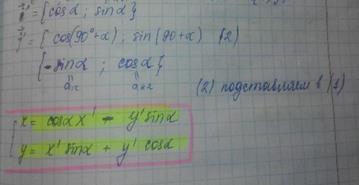 = {cos α ; sin α}
= { cos(90°+α) ; sin (90+α) (2)
{- sin α ; cos α}
a₁₂ a₂₂
(2) подставляем в (1)
x = cos α x' - y' sin α
y = x' sin α + y' cos α